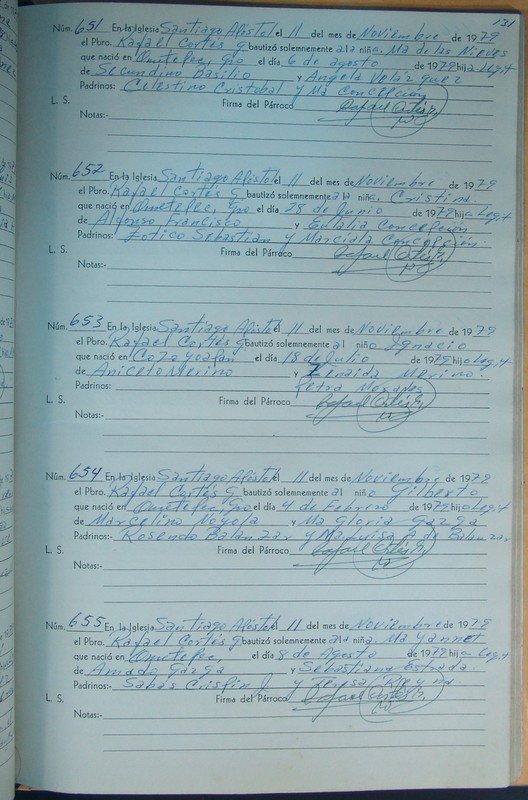 131
Núm. 651 En la Iglesia Santiago Apóstol el 11 del mes de Noviembre de 1979
el Pbro. Rafael Cortés G bautizó solemnemente a la niña Ma de las Nieves
que nació en Ometepec, Gro el día 6 de agosto de 1979 hija Legit
de Secundino Basilio y Angela Velázquez
Padrinos: Celestino Cristobal y Ma Concepción
L. S. Firma del Párroco Rafael Cortés G.
Notas:-
Núm. 652 En la Iglesia Santiago Apóstol el 11 del mes de Noviembre de 1979
el Pbro. Rafael Cortés G. bautizó solemnemente a la niña Cristina
que nació en Ometepec, Gro el día 28 de Junio de 1979 hija Legit
de Alfonso Francisco y Eulalia Concepción
Padrinos: Zotico Sebastian y Marciala Concepción.
L. S. Firma del Párroco Rafael Cortés G.
Notas:-
Núm. 653 En la Iglesia Santiago Apóstol el 11 del mes de Noviembre de 1979
el Pbro. Rafael Cortés G bautizó solemnemente al niño Ignacio
que nació en Cozoyoapan el día 18 de Julio de 1979 hijo Legit
de Aniceto Merino y Zenaida Merino.
Padrinos: Petra Morales
L. S. Firma del Párroco Rafael Cortés G.
Notas:-
Núm. 654 En la Iglesia Santiago Apóstol el 11 del mes de Noviembre de 1979
el Pbro. Rafael Cortés G bautizó solemnemente al niño Gilberto
que nació en Ometepec, Gro el día 4 de Febrero de 1979 hijo Legit
de Marcelino Noyola y Ma Gloria Garga
Padrinos:- Rosendo Balanzar y de Balanzar
L. S. Firma del Párroco Rafael Cortés G.
Notas:-
Núm. 655 En la Iglesia Santiago Apóstol el 11 del mes de Noviembre de 1979
el Pbro. Rafael Cortés G bautizó solemnemente a la niña Ma Yannet
que nació en Ometepec, el día 8 de Agosto de 1979 hija Legit
de Amado Garga y Sebastiana Estrada.
Padrinos:- Sabas Crispin J. y Teresa Reyna.
L. S. Firma del Párroco Rafael Cortés G.
Notas:-